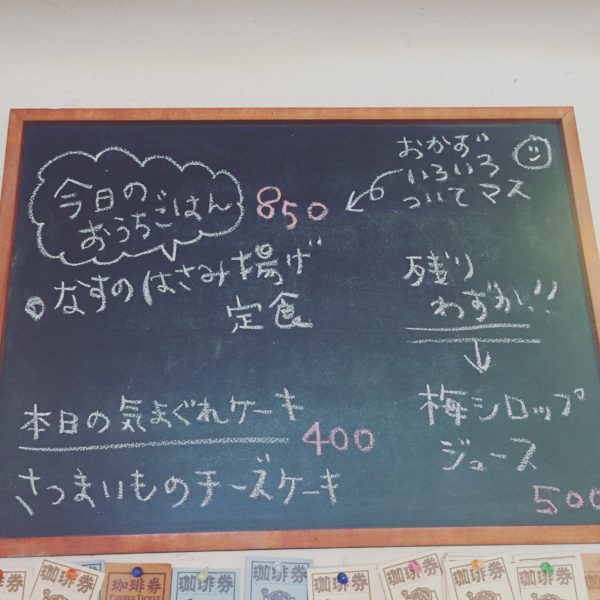 今日の
おうちごはん
850
おかず
いろいろ
ついてマス
なすのはさみ揚げ
定食
残り
わずか!!
梅シロップ
ジュース
500
本日の気まぐれケーキ
400
さつまいものチーズケーキ
珈琲券
珈琲券
珈琲券
COFFEE TICKET
珈琲券
珈琲券
珈琲券
珈琲券
珈琲券
珈琲券